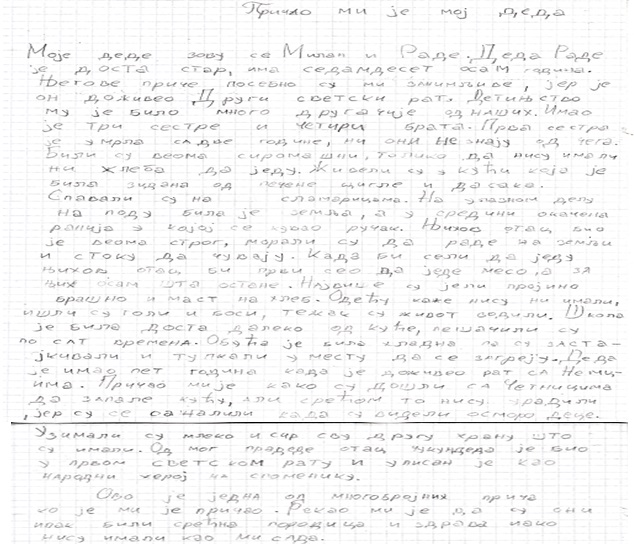 Причао ми је мој деда
Моје деде зову се Милан и Раде. Деда Раде
је доста стар, има седамдесет осам година.
Његове приче посебно су ми занимљиве, јер је
он доживео Други светски рат. Детињство
му је било много другачије од наших. Имао
је три сестре и четири брата. Прва сестра
је умрла са две године, ни они не знају од чега.
Били су веома сиромашни, толико да нису имали
ни хлеба да једу. Живели су у кући која је
била зидана од печене цигле и дасака.
Спавали су на сламарицама. На улазном делу
на поду била је земља, а у средини окачена
у којој се кувао ручак. Њихов отац био
је веома строг, морали су да раде на земљи
и стоку да чувају. Када би сели да једу
њихов отац би први сео да једе месо, а за
њих осам шта остане. Најдише су јели пројино
брашно и маст на хлеб. Одећу каже нису ни имали,
ишли су голи и боси, тежак су живот водили. Школа
је била доста далеко од куће, пешачили су
по сат времена. Обућа је била хладна па су заста-
јкивали и тупкали у месту да се загреју. Деда
је имао пет година када је доживео рат са Немц-
има. Причао ми је како су дошли са четницима
да запале кућу, али срећом то нису урадили
, јер су се сажалили када су видели осморо деце.
Узимали су млеко и сир сву другу храну што
су имали. Од мог прадеде отац чукундеда је био
у првом светском рату и уписан је као
народни херој на споменику.
Ово је једна од многобројних прича
ко је ми је причао. Рекао ми је да су они
ипак били срећна породица и здрава иако
нису имали као ми сада.